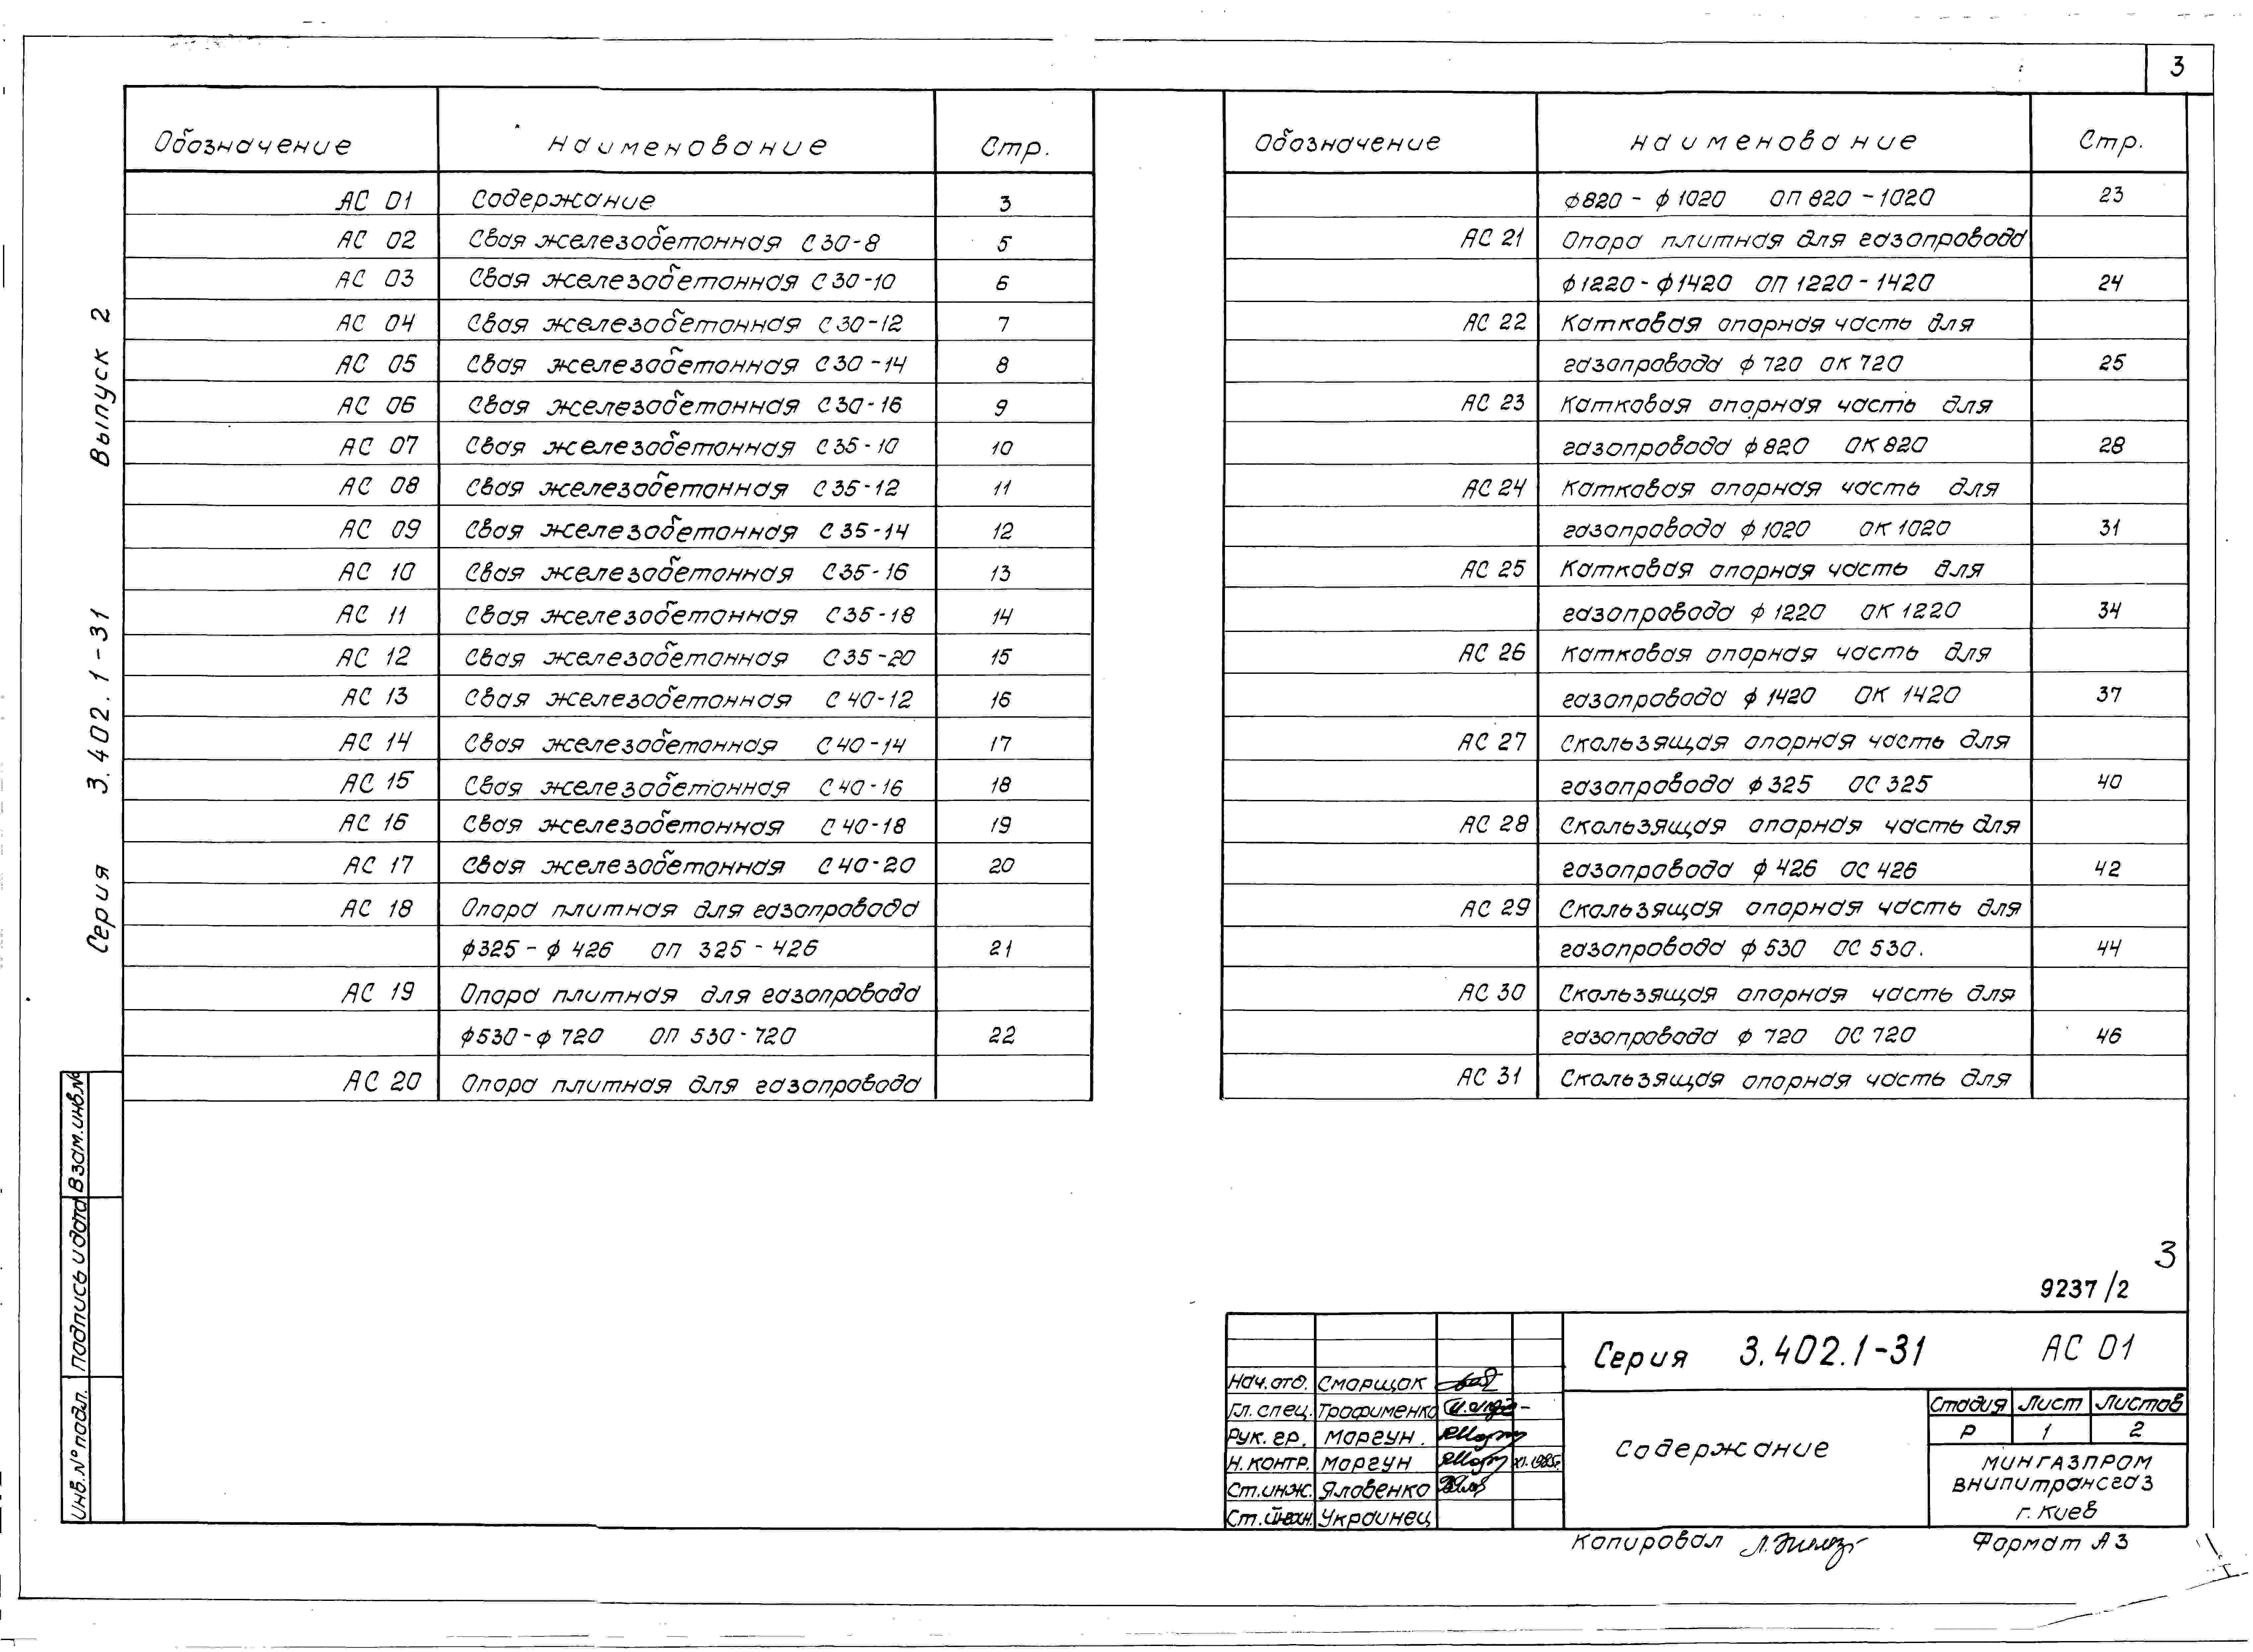 3
Обозначение Наименование Стр.
АС 01 Содержание 3
АС 02 Свая железобетонная С30-8 5
АС 03 Свая железобетонная С30-10 6
АС 04 Свая железобетонная С30-12 7
АС 05 Свая железобетонная С30-14 8
АС 06 Свая железобетонная С30-16 9
АС 07 Свая железобетонная С35-10 10
АС 08 Свая железобетонная С35-12 11
АС 09 Свая железобетонная С35-14 12
АС 10 Свая железобетонная С35-16 13
АС 11 Свая железобетонная С35-18 14
АС 12 Свая железобетонная С35-20 15
АС 13 Свая железобетонная С40-12 16
АС 14 Свая железобетонная С40-14 17
АС 15 Свая железобетонная С40-16 18
АС 16 Свая железобетонная С40-18 19
АС 17 Свая железобетонная С40-20 20
АС 18 Опора плитная для газопровода
ф325-ф426 ОП 325-426 21
АС 19 Опора плитная для газопровода
ф530-ф720 ОП 530-720 22
АС 20 Опора плитная для газопровода
Обозначение Наименование Стр.
ф820-ф1020 ОП 820-1020 23
АС 21 Опора плитная для газопровода
ф1220-ф1420 ОП 1220-1420 24
АС 22 Катковая опорная часть для
газопровода ф720 ОК 720 25
АС 23 Катковая опорная часть для
газопровода ф820 ОК 820 28
АС 24 Катковая опорная часть для
газопровода ф1020 ОК 1020 31
АС 25 Катковая опорная часть для
газопровода ф1220 ОК 1220 34
АС 26 Катковая опорная часть для
газопровода ф1420 ОК 1420 37
АС 27 Скользящая опорная часть для
газопровода ф325 ОС 325 40
АС 28 Скользящая опорная часть для
газопровода ф426 ОС 426 42
АС 29 Скользящая опорная часть для
газопровода ф530 ОС 530. 44
АС 30 Скользящая опорная часть для
газопровода ф720 ОС 720 46
АС 31 Скользящая опорная часть для
Серия 3.402.1-31 Выпуск 2
Инв.№ подл. Подпись и дата Взам.инв.№
3
9237/2
Серия 3.402.1-31 АС 01
Нач.отд. Сморщок
Гл.спец. Трофименко
Рук.гр. Моргун.
Н.контр. Моргун XI.1985г
Ст.инж. Яловенко
Ст.инж. Украинец
Содержание
Стадия Лист Листов
Р 1 2
МИНГАЗПРОМ
ВНИПИтрансгаз
г. Киев
Копировал
Формат А3